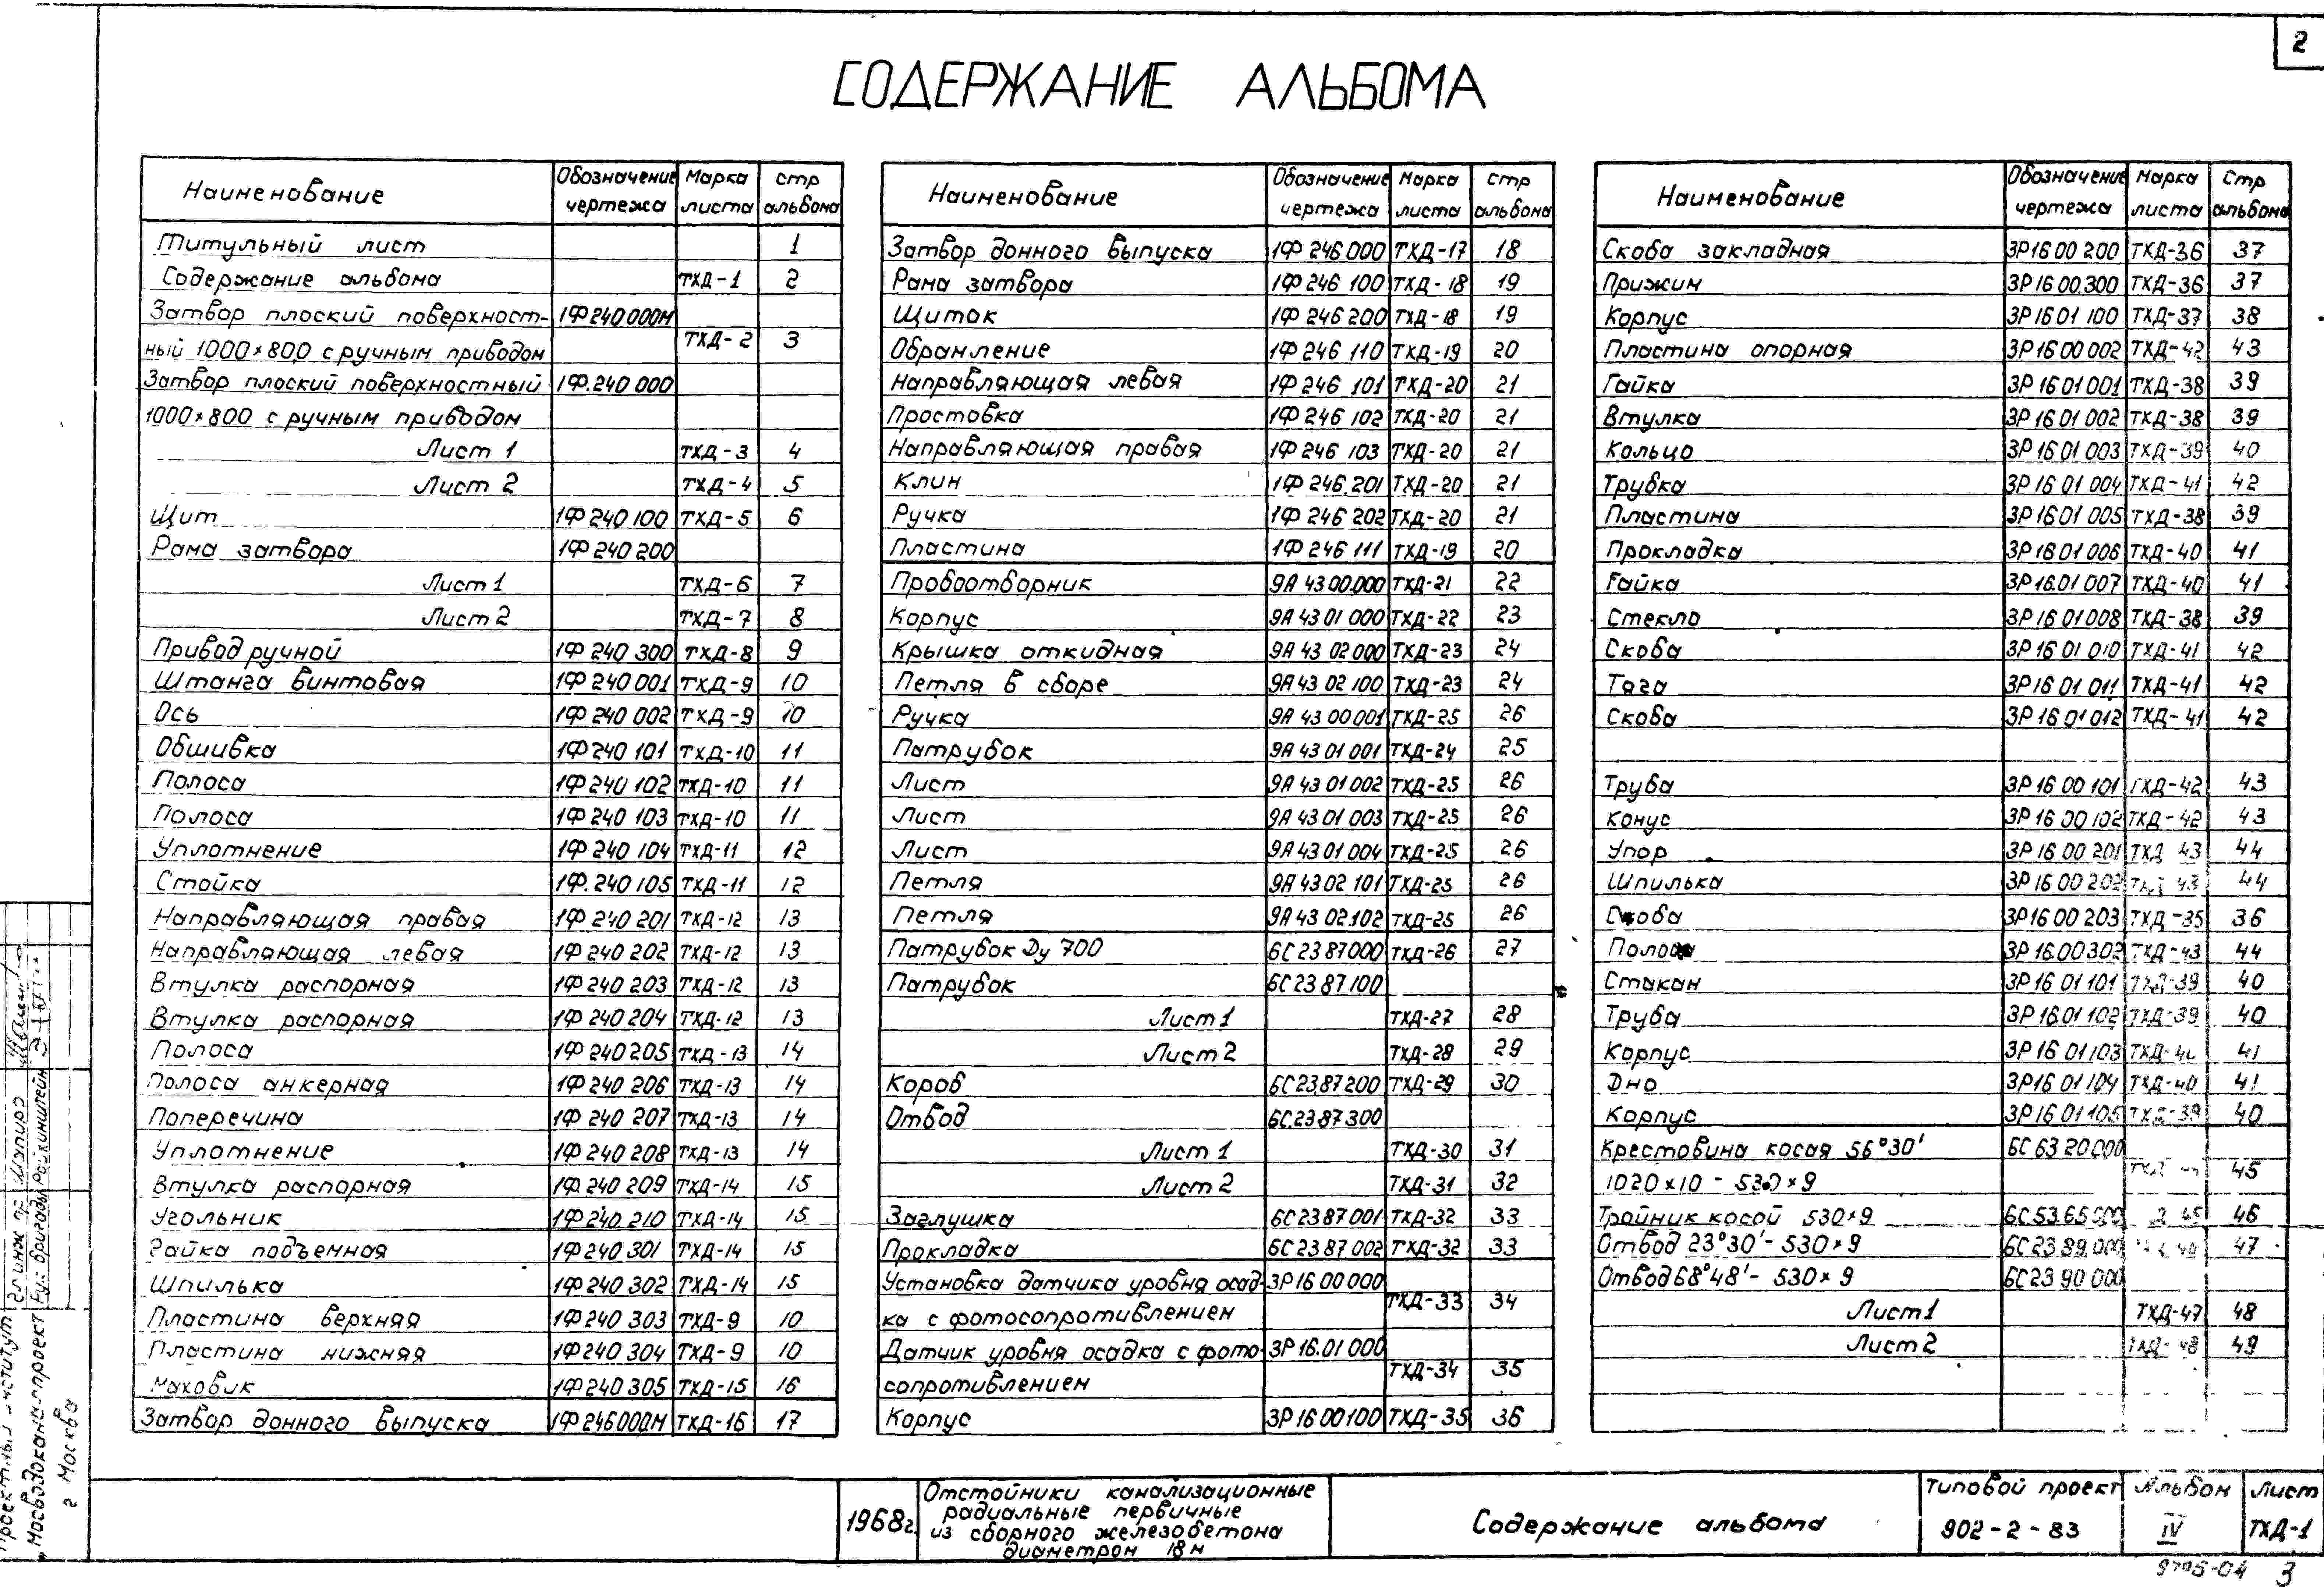 2
СОДЕРЖАНИЕ АЛЬБОМА
Наименование Обозначение чертежа Марка листа стр альбома
Титульный лист 1
Содержание альбома ТХД-1 2
Затвор плоский поверхност- 1Ф240000М
ный 1000×800 с ручным приводом ТХД-2 3
Затвор плоский поверхностный 1Ф.240 000
1000×800 с ручным приводом
Лист 1 ТХД-3 4
Лист 2 ТХД-4 5
Щит 1Ф240 100 ТХД-5 6
Рама затвора 1Ф240 200
Лист 1 ТХД-6 7
Лист 2 ТХД-7 8
Привод ручной 1Ф 240 300 ТХД-8 9
Штанга винтовая 1Ф 240 001 ТХД-9 10
Ось 1Ф 240 002 ТХД-9 10
Обшивка 1Ф240 101 ТХД-10 11
Полоса 1Ф 240 102 ТХД-10 11
Полоса 1Ф 240 103 ТХД-10 11
Уплотнение 1Ф 240 104 ТХД-11 12
Стойка 1Ф.240 105 ТХД-11 12
Направляющая правая 1Ф 240 201 ТХД-12 13
Направляющая левая 1Ф 240 202 ТХД-12 13
Втулка распорная 1Ф 240 203 ТХД-12 13
Втулка распорная 1Ф 240 204 ТХД-12 13
Полоса 1Ф 240 205 ТХД-13 14
Полоса анкерная 1Ф 240 206 ТХД-13 14
Поперечина 1Ф 240 207 ТХД-13 14
Уплотнение 1Ф 240 208 ТХД-13 14
Втулка распорная 1Ф 240 209 ТХД-14 15
Угольник 1Ф 240 210 ТХД-14 15
Гайка подъемная 1Ф240 301 ТХД-14 15
Шпилька 1Ф240 302 ТХД-14 15
Пластина верхняя 1Ф 240 303 ТХД-9 10
Пластина нижняя 1Ф240 304 ТХД-9 10
Маховик 1Ф240 305 ТХД-15 16
Затвор донного выпуска 1Ф246000М ТХД-16 17
Наименование Обозначение чертежа Марка листа стр альбома
Затвор донного выпуска 1Ф 246 000 ТХД-17 18
Рама затвора 1Ф 246 100 ТХД-18 19
Щиток 1Ф 246 200 ТХД-18 19
Обрамление 1Ф 246 110 ТХД-19 20
Направляющая левая 1Ф 246 101 ТХД-20 21
Простовка 1Ф 246 102 ТХД-20 21
Направляющая правая 1Ф 246 103 ТХД-20 21
Клин 1Ф 246.201 ТХД-20 21
Ручка 1Ф 246 202 ТХД-20 21
Пластина 1Ф 246 111 ТХД-19 20
Пробоотборник 9А 43 00.000 ТХД-21 22
Корпус 9А 43 01 000 ТХД-22 23
Крышка откидная 9А 43 02 000 ТХД-23 24
Петля в сборе 9А 43 02 100 ТХД-23 24
Ручка 9А 43 00 001 ТХД-25 26
Патрубок 9А 43 01 001 ТХД-24 25
Лист 9А 43 01 002 ТХД-25 26
Лист 9А 43 01 003 ТХД-25 26
Лист 9А 43 01 004 ТХД-25 26
Петля 9А 43 02 101 ТХД-25 26
Петля 9А 43 02.102 ТХД-25 26
Патрубок Ду 700 6С 23 87000 ТХД-26 27
Патрубок 6С 23 87 100
Лист 1 ТХД-27 28
Лист 2 ТХД-28 29
Короб 6С 23.87 200 ТХД-29 30
Отвод 6С.23.87 300
Лист 1 ТХД-30 31
Лист 2 ТХД-31 32
Заглушка 6С 23 87 001 ТХД-32 33
Прокладка 6С 23 87 002 ТХД-32 33
Установка датчика уровня осад- 3Р16 00 000
ка с фотосопротивлением ТХД-33 34
Датчик уровня осадка с фото- 3Р 16.01 000
сопротивлением ТХД-34 35
Корпус 3Р 16 00100 ТХД-35 36
Наименование Обозначение чертежа Марка листа Стр альбома
Скоба закладная 3Р16 00 200 ТХД-36 37
Прижим 3Р 16 00.300 ТХД-36 37
Корпус 3Р 16 01 100 ТХД-37 38
Пластина опорная 3Р 16 00 002 ТХД-42 43
Гайка 3Р 16 01 001 ТХД-38 39
Втулка 3Р 16 01 002 ТХД-38 39
Кольцо 3Р 16 01 003 ТХД-39 40
Трубка 3Р 16 01 004 ТХД-41 42
Пластина 3Р 16 01 005 ТХД-38 39
Прокладка 3Р 16 01 006 ТХД-40 41
Гайка 3Р 16.01 007 ТХД-40 41
Стекло 3Р 16 01 008 ТХД-38 39
Скоба 3Р 16 01 010 ТХД-41 42
Тяга 3Р 16 01 011 ТХД-41 42
Скоба 3Р 16 01 012 ТХД-41 42
Труба 3Р 16 00 101 ТХД-42 43
Конус 3Р 16 00 102 ТХД-42 43
Упор 3Р 16 00 201 ТХД 43 44
Шпилька 3Р 16 00 202 ТХД 43 44
Скоба 3Р16 00 203 ТХД-35 36
Полоса 3Р 16.00302 ТХД-43 44
Стакан 3Р 16 01 101 ТХД-39 40
Труба 3Р 16.01 102 ТХД-39 40
Корпус 3Р 16 01 103 41
Дно 3Р16 01 104 ТХД-40 41
Корпус 3Р 16 01 105 ТХД-39 40
Крестовина косая 56°30' 6С 63 20 000
1020×10 - 530×9 45
Тройник косой 530×9 6С 53 65 000 45 46
Отвод 23°30' - 530×9 6С 23 89.000 47
Отвод 68°48' - 530×9 6С 23 90 000
Лист 1 ТХД-47 48
Лист 2 ТХД-48 49
1968г.
Отстойники канализационные
радиальные первичные
из сборного железобетона
диаметром 18м
Содержание альбома
Типовой проект
902-2-83
Альбом
IV
Лист
ТХД-1
9795-04 3
институт
„Мосводоканалпроект
г Москва
Гл инж пр Шапиро
Рук бригады Райхинштейн